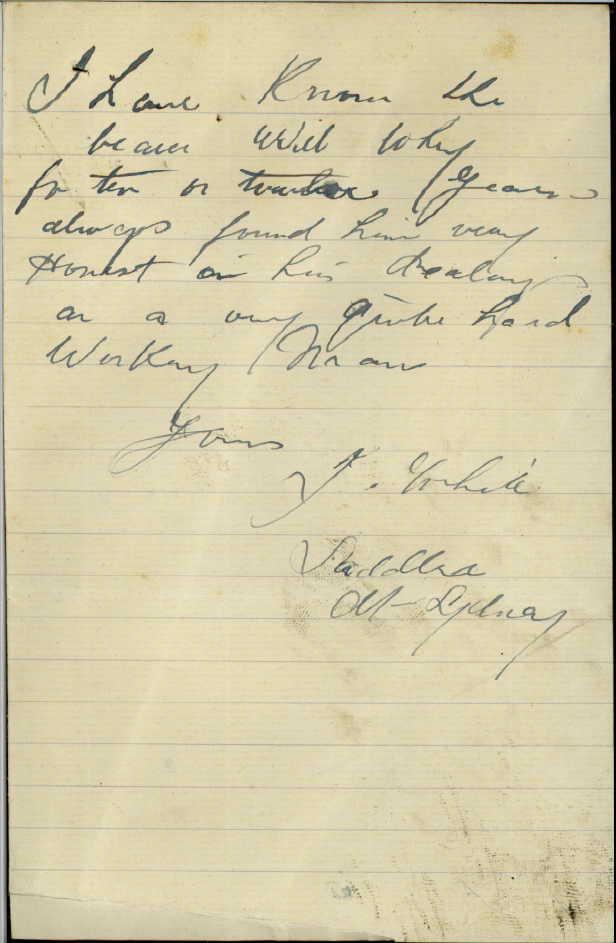 I have Known the
bearer Will
for ten or twelve years
always found him very
Honest in his dealing
as a very quite hard
Working Man
Yours
J. White
Saddler
Mt Sydney